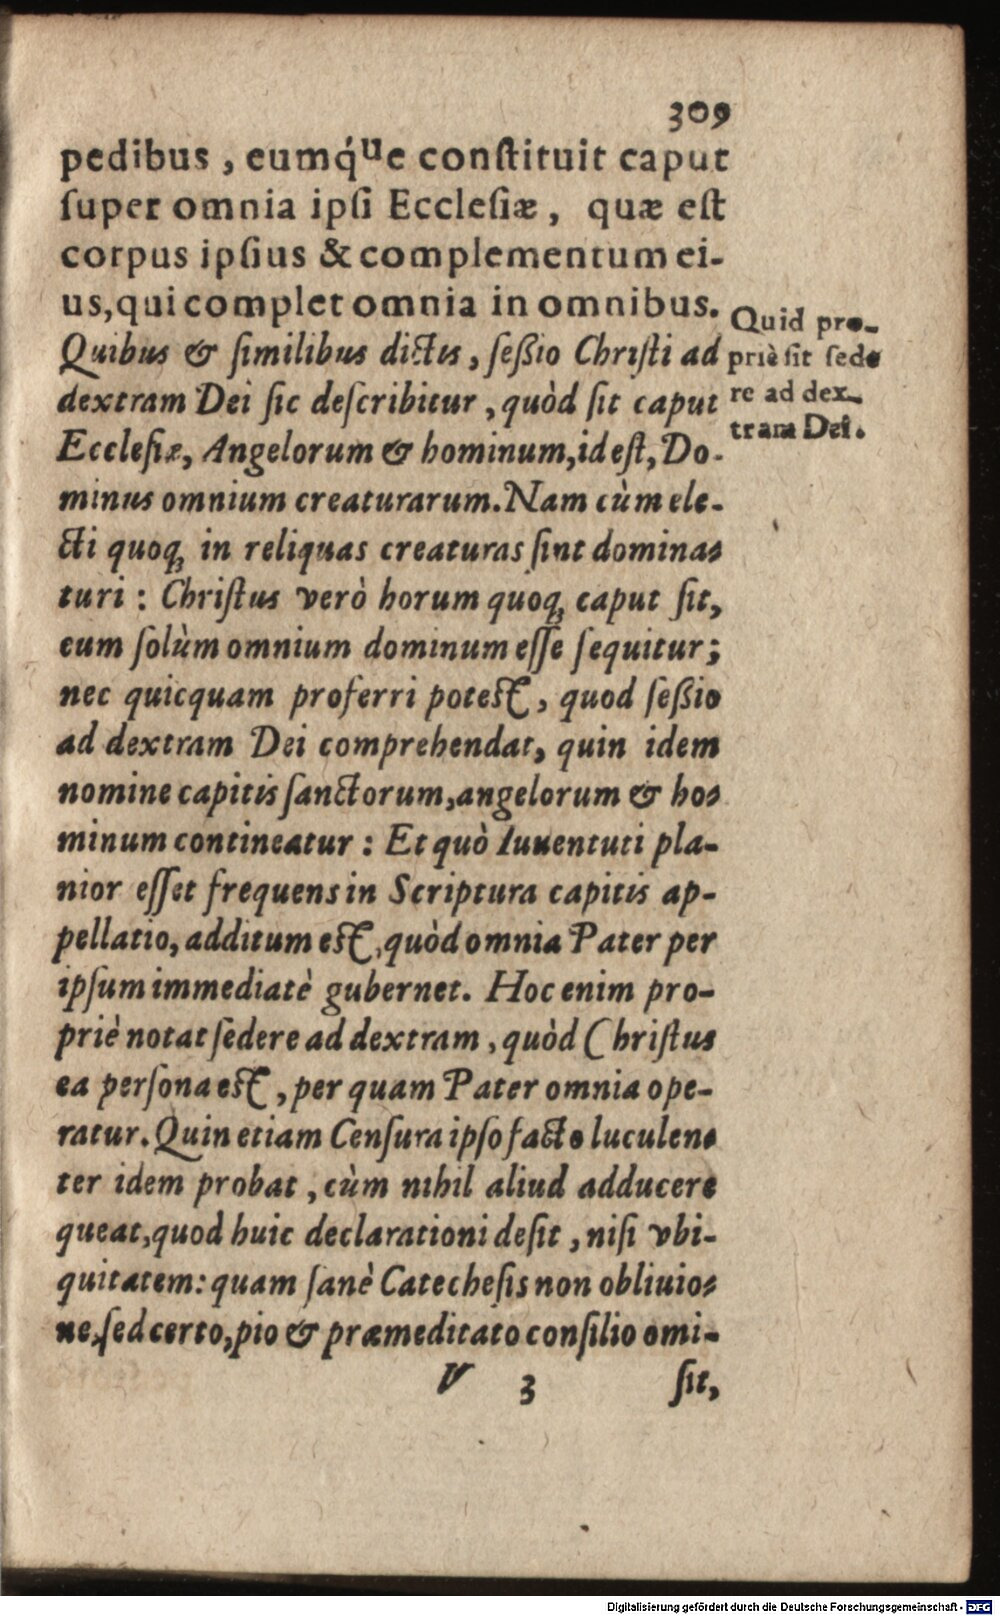 309
pedibus, eumq́ue constituit caput
super omnia ipsi Ecclesiæ, quæ est
corpus ipsius & complementum ei-
us, qui complet omnia in omnibus.
Quid pro-
priè sit sede
re ad dex-
tram Dei.
Quibus & similibus dictis, seßio Christi ad
dextram Dei sic describitur, quòd sit caput
Ecclesiæ, Angelorum & hominum, id est, Do-
minus omnium creaturarum. Nam cùm ele-
cti quoq; in reliquas creaturas sint domina-
turi: Christus verò horum quoq; caput sit,
eum solùm omnium dominum esse sequitur;
nec quicquam proferri potest, quod seßio
ad dextram Dei comprehendat, quin idem
nomine capitis sanctorum, angelorum & ho-
minum contineatur: Et quò Iuuentuti pla-
nior esset frequens in Scriptura capitis ap-
pellatio, additum est, quòd omnia Pater per
ipsum immediatè gubernet. Hoc enim pro-
priè notat sedere ad dextram, quòd Christus
ea persona est, per quam Pater omnia ope-
ratur. Quin etiam Censura ipso facto luculen-
ter idem probat, cùm nihil aliud adducere
queat, quod huic declarationi desit, nisi vbi-
quitatem: quam sanè Catechesis non obliuio-
ne, sed certo, pio & præmeditato consilio omi-
V 3 sit,
Digitalisierung gefördert durch die Deutsche Forschungsgemeinschaft - DFG